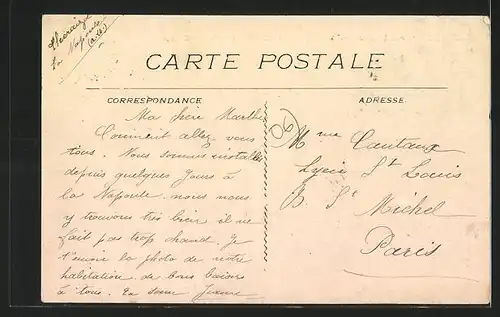 la Napoule
(A-M)
CARTE POSTALE
CORRESPONDANCE
ADRESSE
Ma chère Marthe
Comment allez vous
tous. Nous sommes installés
depuis quelques jours à
la Napoule. nous nous
y trouvons très bien il ne
fait pas trop chaud. Je
t'envoie la photo de notre
habitation. de bons baisers
à tous. Ta sœur Jeanne
06
Mme Cautaux
Lycée St Louis
B. St Michel
Paris